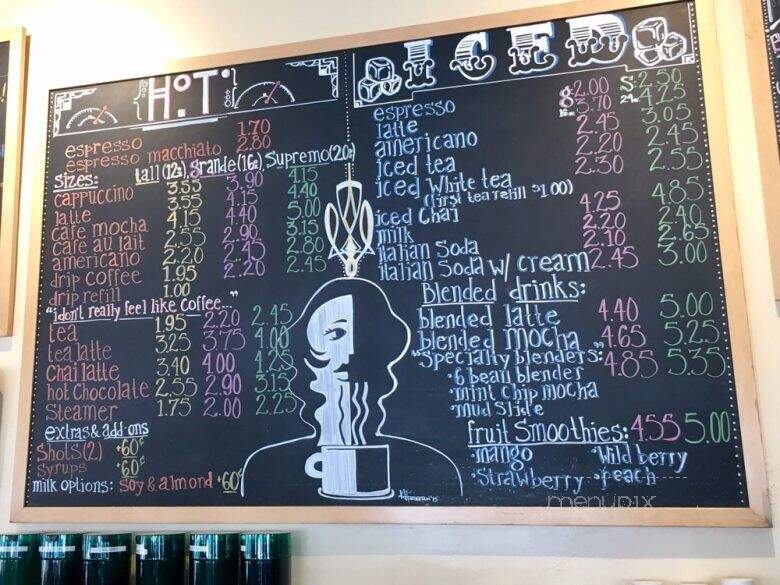 HOT
espresso 1.70
espresso macchiato 2.80
sizes: tall (12oz), grande (16oz), Supremo (20oz)
cappuccino 3.55 3.90 4.15
latte 3.55 4.15 4.40
cafe mocha 4.15 4.40 5.00
cafe au lait 2.55 2.90 3.15
americano 2.20 2.45 2.80
drip coffee 1.95 2.20 2.45
drip refill 1.00
"i don't really feel like coffee..."
tea 1.95 2.20 2.45
tea latte 3.25 3.75 4.00
chai latte 3.40 4.00 4.25
hot chocolate 2.55 2.90 3.15
Steamer 1.75 2.00 2.25
extras & add-ons
Shots (2) +60¢
Syrups +60¢
milk options: soy & almond +60¢
ICED
g 16oz S 24oz
espresso 2.00 2.50
latte 3.70 4.25
americano 2.45 3.05
iced tea 2.20 2.45
iced white tea 2.30 2.55
(first tea refill $1.00)
iced chai 4.25 4.85
milk 2.20 2.40
italian Soda 2.10 2.65
italian Soda w/ cream 2.45 3.00
Blended drinks:
blended latte 4.40 5.00
blended mocha 4.65 5.25
"Specialty blenders: 4.85 5.35
•6 bean blender
•mint chip mocha
•mud Slide
fruit Smoothies: 4.55 5.00
•mango •Wild berry
•Strawberry •peach
menupix